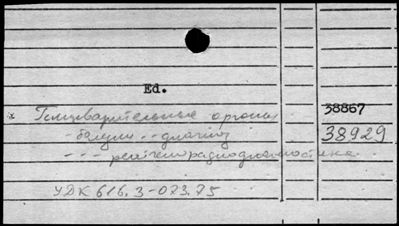 Ed.
* Пищеварительные органы 38867
- болезни - - диагноз 38929
- - - рентгенорадиодиагностика
УДК 616.3-073.75